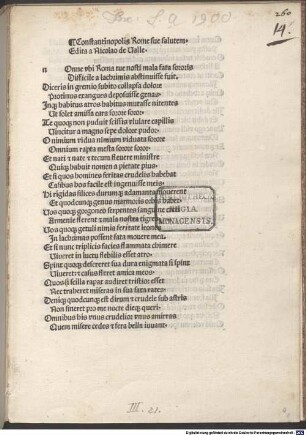 260
14.
¶Constantinopolis Rome sue salutem
Edita a Nicolao de Valle.
n Onne vbi Roma tue nosti mala fata sororis
Difficile a lachrimis abstinuisse fuit.
Diceris in gremio subito collapsa dolore
Protinus exangues deposuisse genas
Inq; habitus atros habitus mutasse nitentes
Ut solet amissa cara sorore soror.
Te quoq; non puduit scissis vlulare capillis
Uincitur a magno sepe dolore pudor.
O nimium vidus nimium viduata sorore
Omnium rapta mesta sorore soror
Et nati y nate y tecum fleuere ministre
Quiq; habuit nomen a pietate pius.
Et si quos homines seritas crudelis habebat
Casibus hos facile est ingemuisse meis.
Di rigidas silices durumq; adamanta mouerent
Et quodcumq; genus marmoris echia habet
Uos quoq; gorgoneo serpentes sanguine creti
Armenie flerent y mala nostra tigres
Uos quoq; getuli nimia feritate leones
In lachrimas possent fata mouere mea.
Et si nunc triplicis facies flammata chimere
Uiueret in luctu flebilis esset atro
Spinx quoq; desereret sua dura enigmata si spinx
Uiueret y casus fleret amica meos
Quos si scilla rapax audiret tristior esset
Nec traheret miseras in sua fata rates
Deniq; quodcumq; est dirum y crudele sub astris
Non sineret pro me nocte dieq; queri
Omnibus his vnus crudelior vnus amirras
Quem misere cedes y fera bella iuuant
REGIA
MONACENSIS.
III. 21.